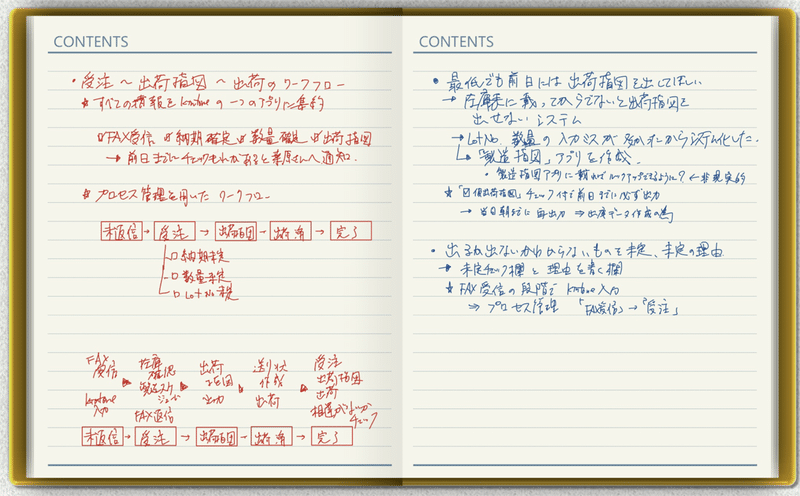 CONTENTS
・受注〜出荷指図〜出荷のワークフロー
★すべての情報をkintoneの一つのアプリに集約
FAX受信 納期確定 数量確認 出荷指図
→前日までにチェックもれがあると 原さんへ通知.
プロセス管理を用いたワークフロー
未返信→受注→出荷指図→出荷済→完了
□納期未定
□数量未定
□Lot No 未定
FAX受信 在庫確認 出荷指図 送り状作成 受注
kintone入力 製造スケジュール 出力 出荷 出荷指図
FAX返信 出荷
相違がないかチェック
未返信→受注→出荷指図→出荷済→完了
CONTENTS
・最低でも前日には出荷指図を出してほしい
→在庫表に載ってからでないと出荷指図を
出せないシステム
→Lot No. 数量の入力ミスが多かったからシステム化した.
「製造指図」アプリを作成.
・製造指図アプリに載ればルックアップできるように? ←非現実的
★「出荷指図」チェック付で前日までに必ず出力
→当日朝までに再出力⇒出庫データ作成の為
・出るか出ないかわからないものを未定、未定の理由
→未定チェック欄と理由を書く欄
★FAX受信の段階でkintone入力
⇒プロセス管理 「FAX受信」→「受注」